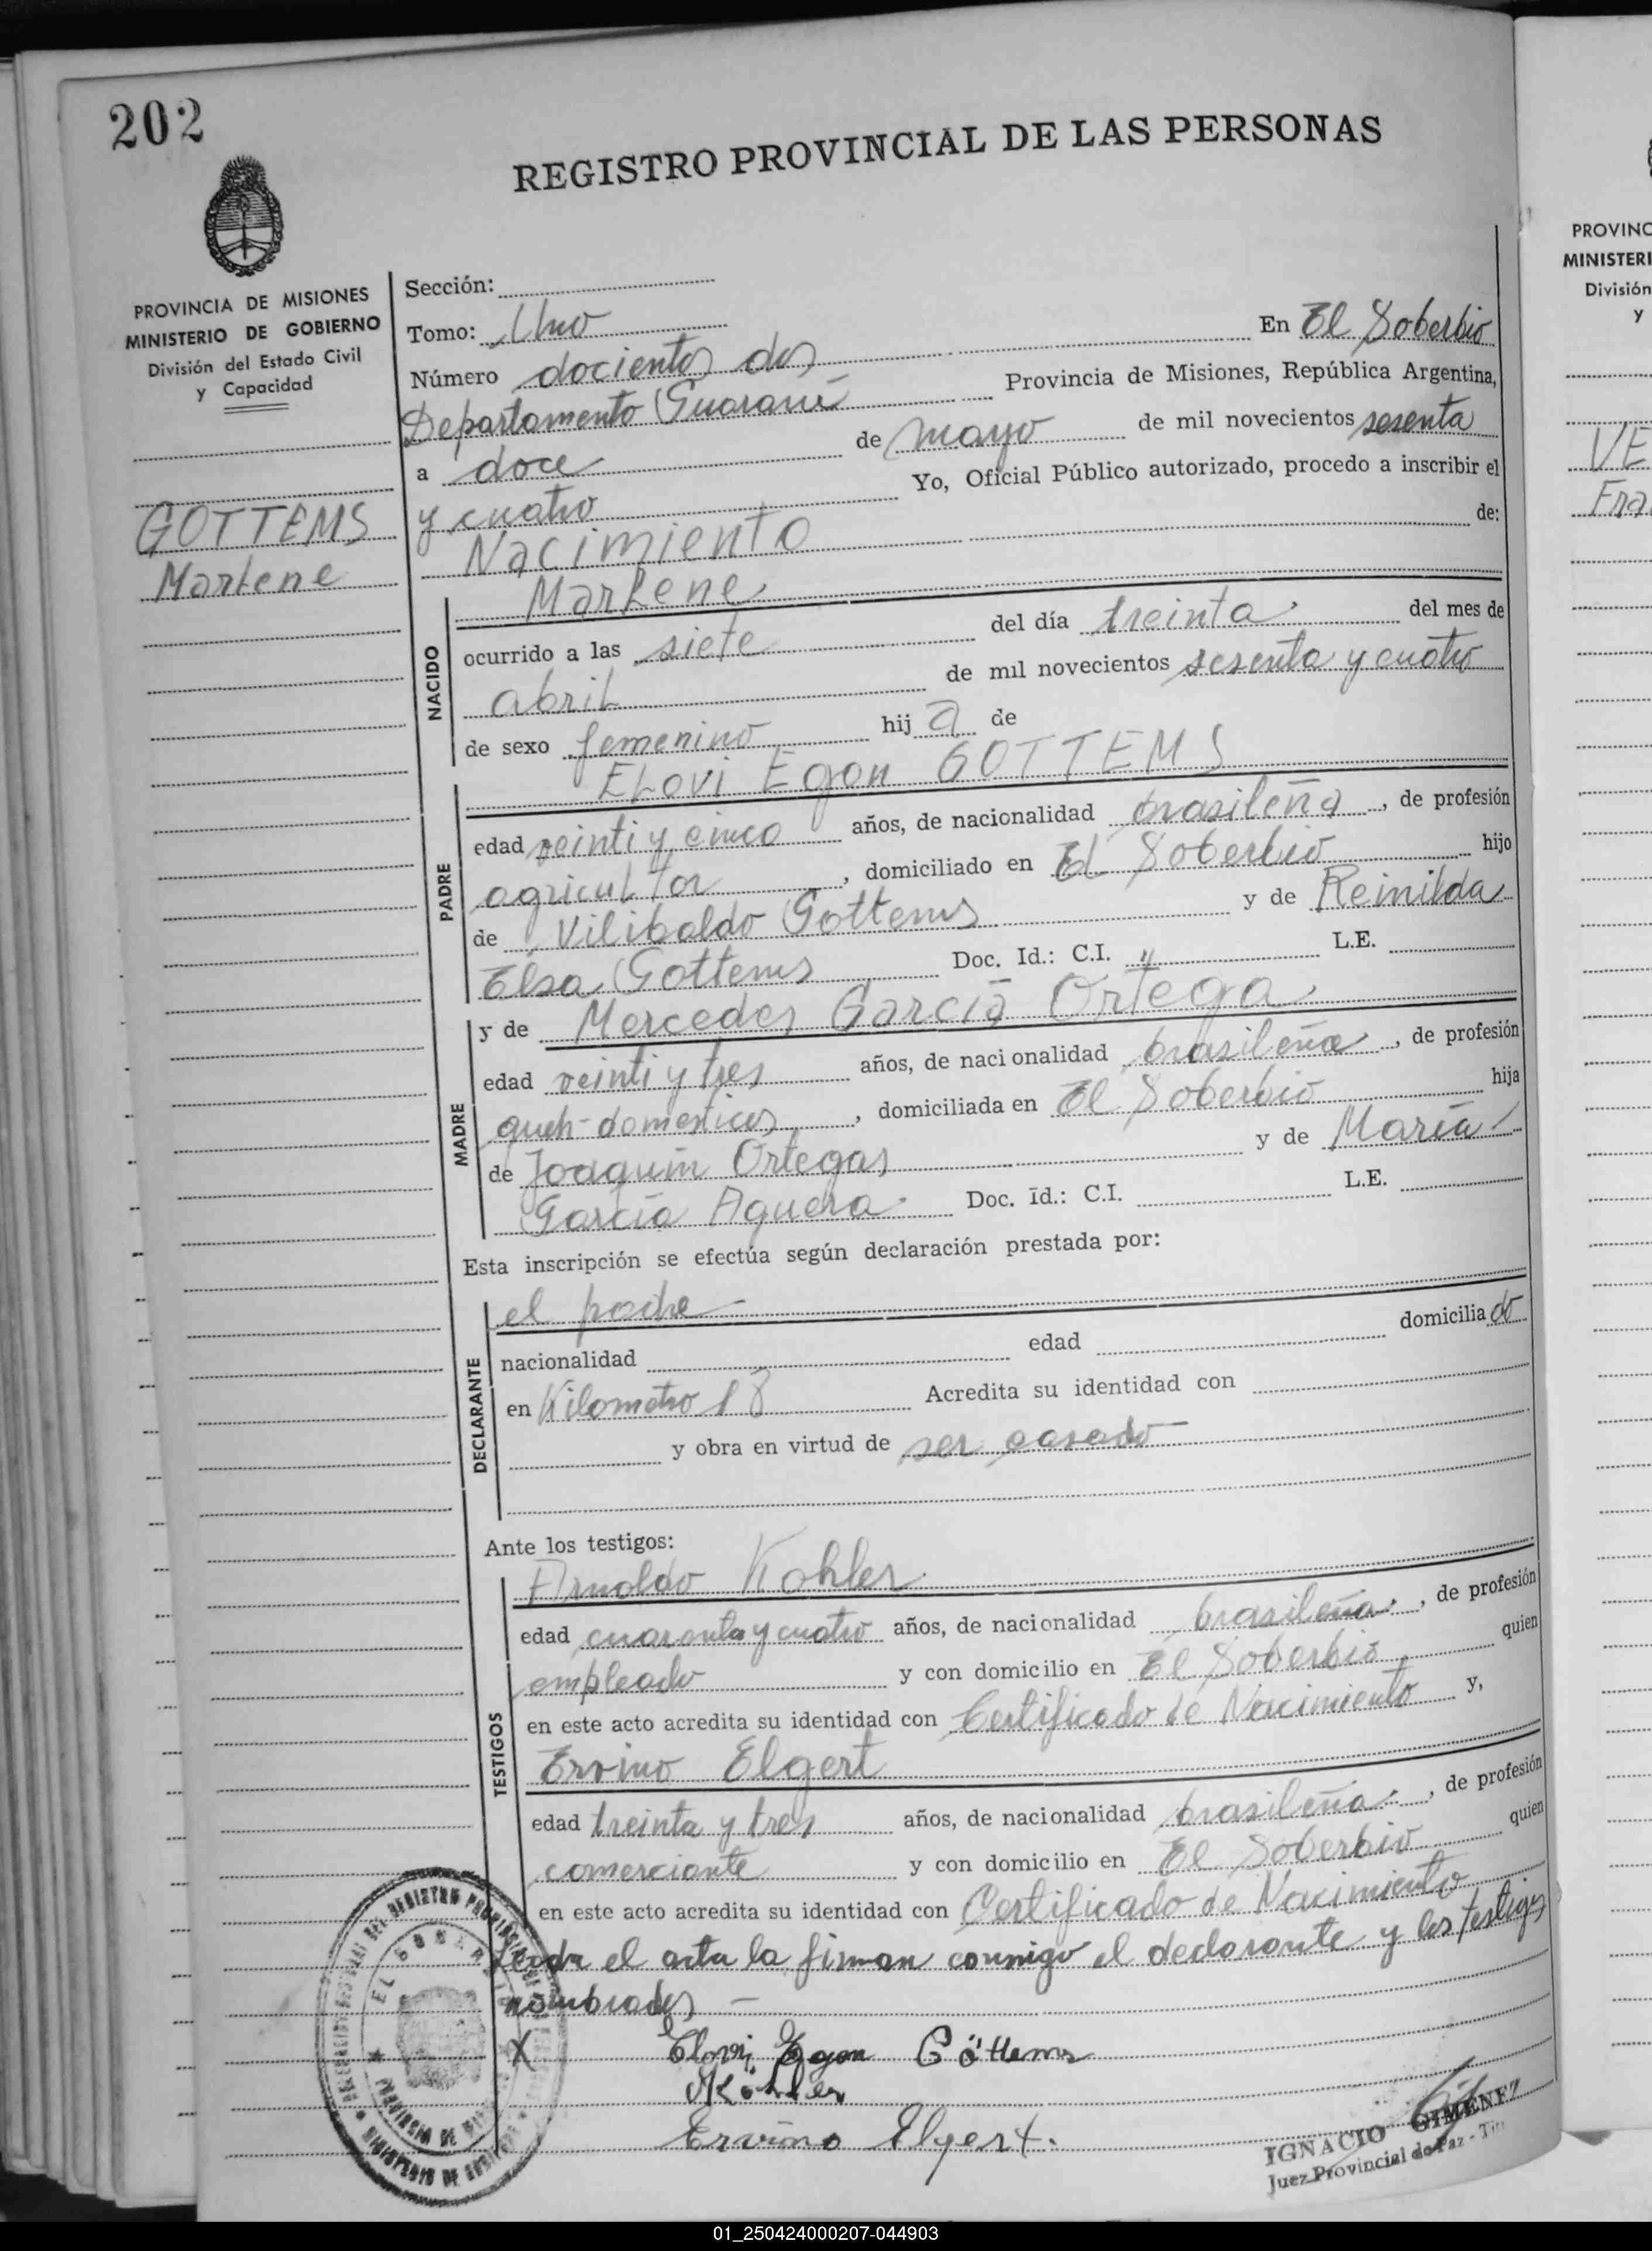 202
REGISTRO PROVINCIAL DE LAS PERSONAS
PROVINCIA DE MISIONES
MINISTERIO DE GOBIERNO
División del Estado Civil
y Capacidad
GOTTEMS
Marlene
Sección:
Tomo: Uno
Número docientos dos En El Soberbio
Departamento Guaraní Provincia de Misiones, República Argentina,
a doce de mayo de mil novecientos sesenta
y cuatro Yo, Oficial Público autorizado, procedo a inscribir el
Nacimiento de:
Marlene
NACIDO
ocurrido a las siete del día treinta del mes de
abril de mil novecientos sesenta y cuatro
de sexo femenino hij a de
Elovi Egon GOTTEMS
PADRE
edad veinti y cinco años, de nacionalidad brasileña, de profesión
agricultor, domiciliado en El Soberbio hijo
de Vilibaldo Gottems y de Reinilda
Elsa Gottems Doc. Id.: C.I. " L.E.
y de Mercedes García Ortega
MADRE
edad veinti y tres años, de nacionalidad brasileña, de profesión
queh-domesticos, domiciliada en El Soberbio hija
de Joaquin Ortegas y de María
García Aguera Doc. Id.: C.I. L.E.
Esta inscripción se efectúa según declaración prestada por:
el padre
DECLARANTE
nacionalidad edad domicilia do
en Kilometro 18 Acredita su identidad con
y obra en virtud de ser casado
Ante los testigos:
Arnoldo Kohler
TESTIGOS
edad cuarenta y cuatro años, de nacionalidad brasileña, de profesión
empleado y con domicilio en El Soberbio quien
en este acto acredita su identidad con Certificado de Nacimiento y,
Ervino Elgert
edad treinta y tres años, de nacionalidad brasileña, de profesión
comerciante y con domicilio en El Soberbio quien
en este acto acredita su identidad con Certificado de Nacimiento
Leida el acta la firman conmigo el declarante y los testigos
nombrados —
X Elovi Egon Göttems
Köhler
Ervino Elgert.
IGNACIO GIMENEZ
Juez Provincial de Paz - Tit
PROVINC
MINISTERI
División
y
VE
Fra
01_250424000207-044903